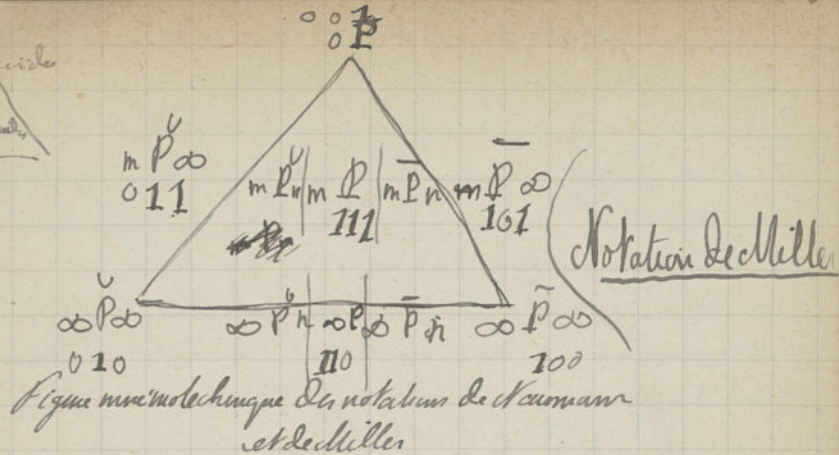 001
0P
m P̆ ∞
011
m P̆n | m P | m P̄ n
111
m P̄ ∞
101
Notation de Miller
∞ P̆ ∞
010
∞ P̆ n | ∞ P | ∞ P̄ n
110
∞ P̄ ∞
100
Figure mnémotechnique des notations de Naumann
et de Miller